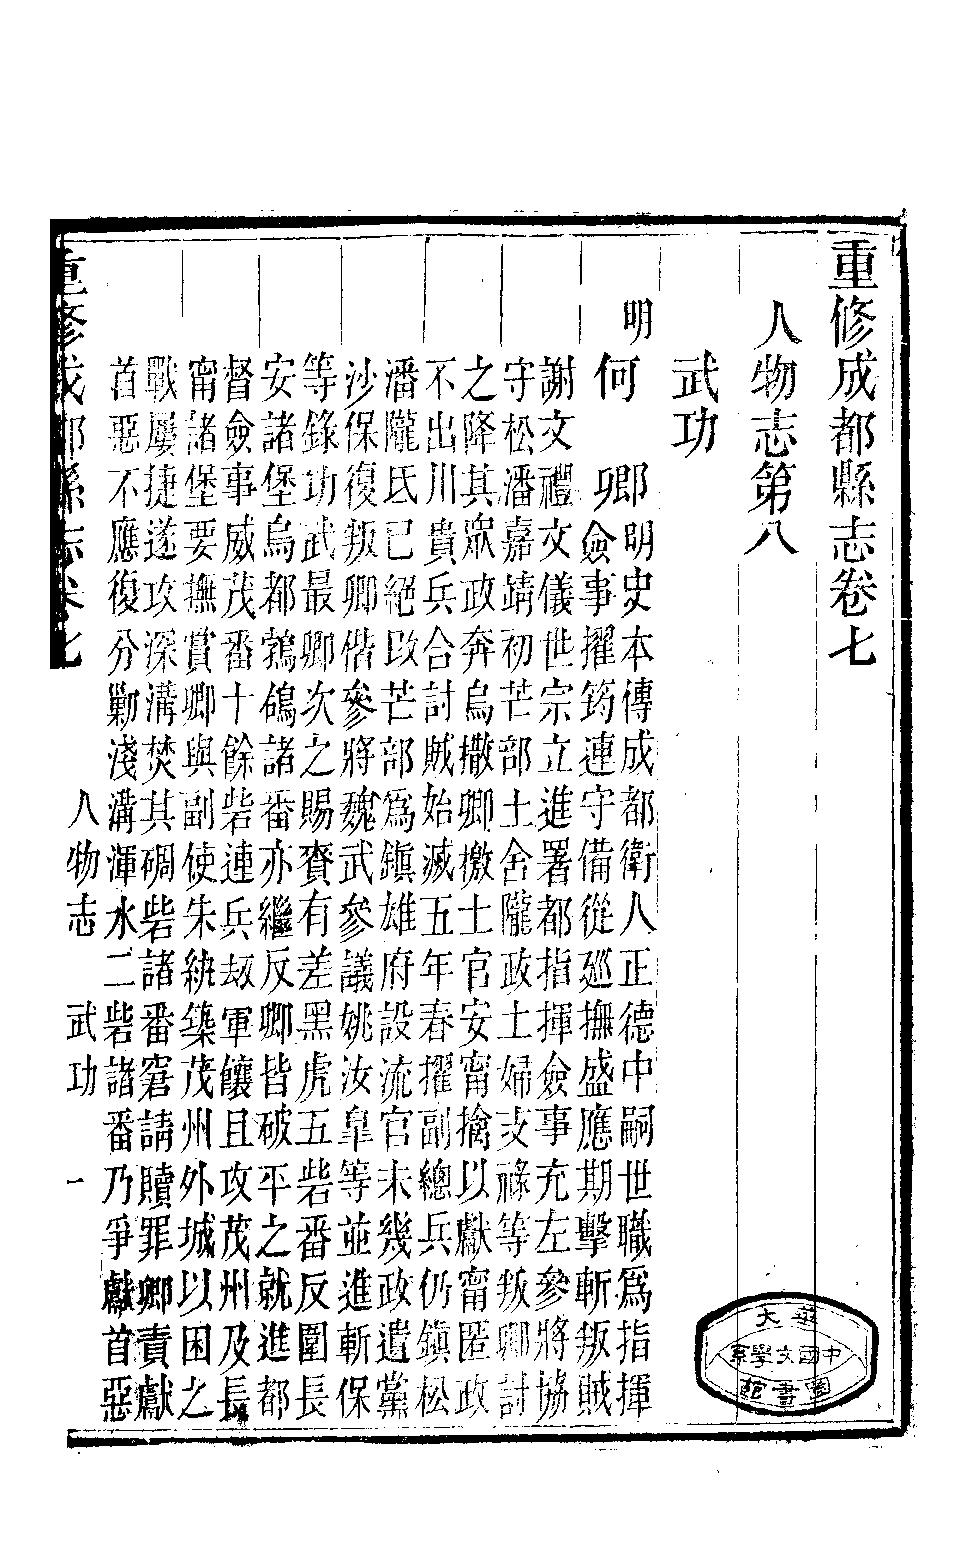 重修成都縣志卷七
人物志第八
武功
明
何　卿明史本傳成都衛人正德中嗣世職爲指揮
僉事擢筠連守備從廵撫盛應期擊斬叛賊
謝文禮文儀世宗立進署都指揮僉事充左參將協
守松潘嘉靖初芒部土舍隴政土婦支祿等叛卿討
之降其眾政奔烏撒卿檄土官安甯擒以獻甯匿政
不出川貴兵合討賊始滅五年春擢副總兵仍鎮松
潘隴氏已絕改芒部爲鎮雄府設流官未幾政遺黨
沙保復叛卿偕參將魏武參議姚汝臯等並進斬保
等錄功武最卿次之賜賚有差黑虎五砦番反圍長
安諸堡烏都鵓鴿諸番亦繼反卿皆破平之就進都
督僉事威茂番十餘砦連兵刼軍饟且攻茂州及長
甯諸堡要撫賞卿與副使朱紈築茂州外城以困之
戰屢捷遂攻深溝焚其碉砦諸番窘請贖罪卿責獻
首惡不應復分勦淺溝渾水二砦諸番乃爭獻首惡
重修成都縣志卷七
人物志　武功　一
華大
中國文學系
圖書館